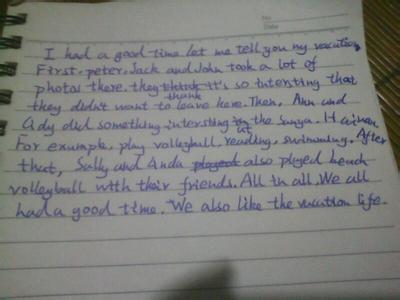 No
Date
I had a good time let me tell you my vacation
First. peter. Jack and John took a lot of
photos there. they think it's so intersting that
thank
they didn't want to leave here. Then, Ann and
Ady did something intersting in the Sanya. Hainan.
at
For example, play volleyball, reading, swimming. After
that, Sally and Anda played also played beach
volleyball with their friends. All in all. We all
had a good time. We also like the vacation life.